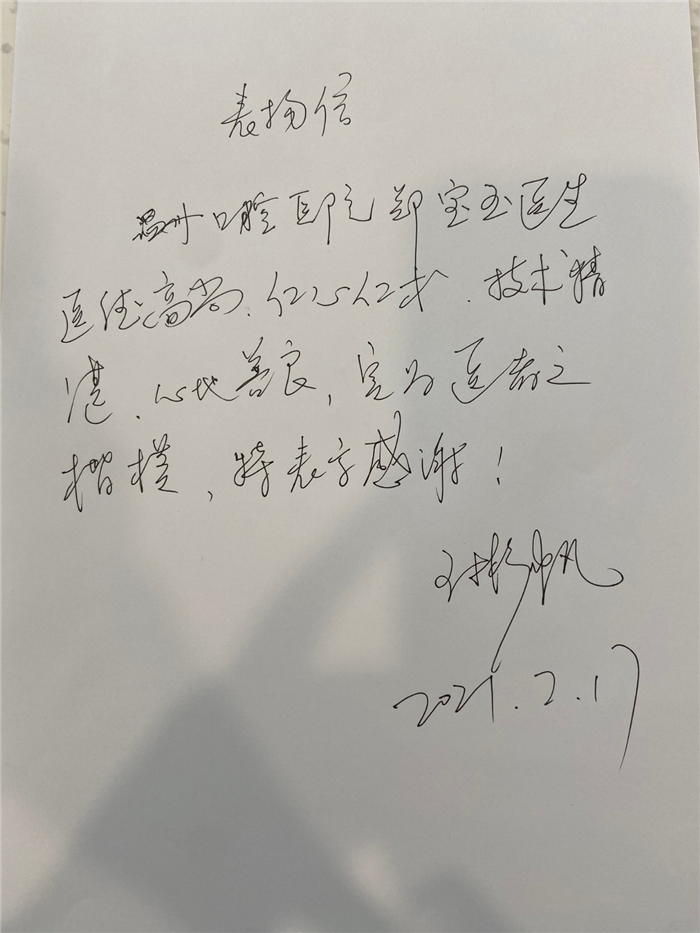 表扬信
温州口腔医院郑宝玉医生
医德高尚、仁心仁术、技术精
湛、心地善良，实为医者之
楷模，特表示感谢！
2021.2.17